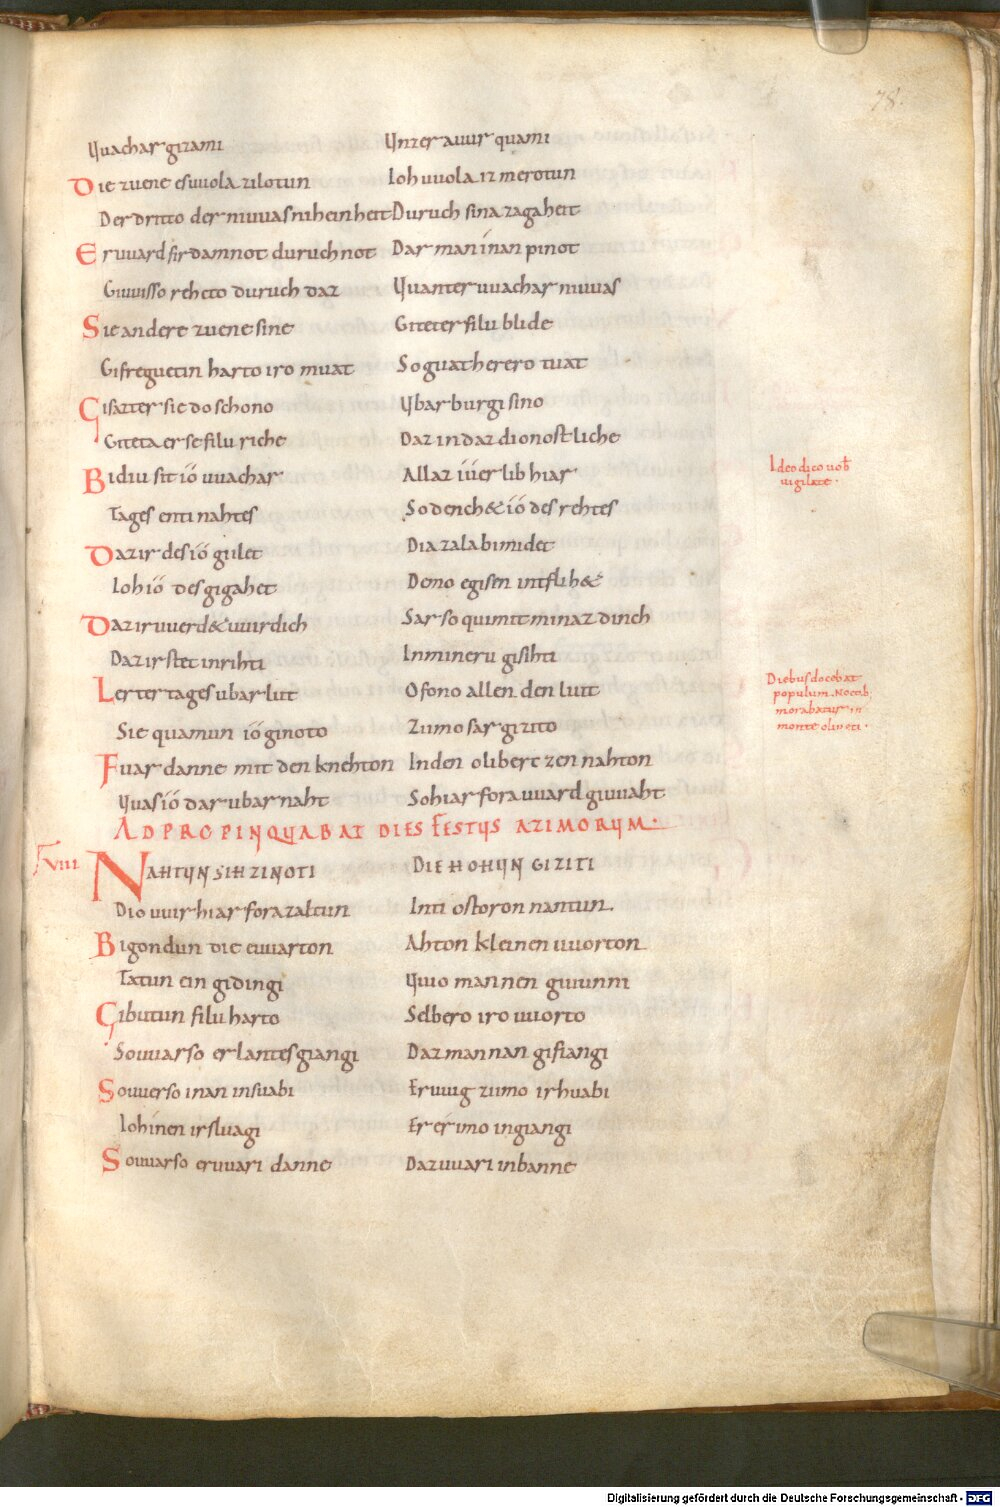 78.
Uuachar gizami Unzer auur quami
Die zuene es uuola zilotun Ioh uuola iz merotun
Der dritto der nuuas niheinheit Duruch sina zagaheit
Er uuard firdamnot duruch not Dar man ínan pinot
Giuuisso rehcto duruch daz Uuanter uuachar nuuas
Sie andere zuene sine Giteter filu blide
Gifreguetin harto iro muat So guat herero tuat
Gisazter sie do schono Ubar burgi sino
Giteta er se filu riche Daz in daz dionostliche
Bidiu sit ió uuachar Allaz iúer lib hiar
Tages enti nahtes So denchet ió des rehtes
Daz ir des ió gilet Dia zala bimidet
Ioh ió des gigahet Demo egisen intflihet
Daz ir uuerdet uuirdich Sar so quimit min az dinch
Daz ir stet in rihti In mineru gisihti
Lerter tages ubar lut Ofono allen den liut
Sie quamun ió ginoto Zi imo sar gizito
Fuar danne mit den knehton In den oliberc zen nahton
Uuas ió dar ubar naht So hiar fora uuard giuuaht
Ideo dico uob
uigilate.
Diebus docebat
populum. Noctib;
morabatur in
monte oliueti.
ADPROPINQUABAT DIES FESTUS AZIMORUM.
VIII NAHTUN SIH ZI NOTI DIE HOHUN GIZITI
Dio uuir hiar fora zaltun Inti ostoron nantun.
Bigondun die euuarton Ahton kleinen uuorton
Tatun ein gidingi Uuio man nen giuunni
Gibutun filu harto Selbero iro uuorto
So uuar so er lantes giangi Daz man nan gifiangi
So uuer so inan insuabi Er uuig zi imo irhuabi
Ioh ínen irsluagi Er er imo ingiangi
So uuar so er uuari danne Daz uuari in banne
Digitalisierung gefördert durch die Deutsche Forschungsgemeinschaft - DFG